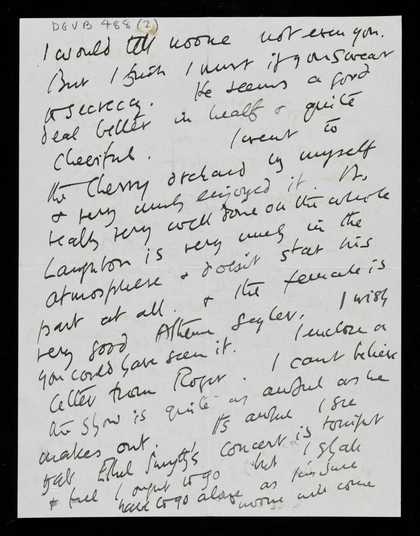 DGVB 488 (2)
I would tell noone not even you.
But I think I must if you swear
to secrecy. He seems a good
deal better in health & quite
cheerful. I went to
the Cherry orchard by myself
& very much enjoyed it. Its
really very well done on the whole
Laughton is very much in the
atmosphere & doesn't star his
part at all. & the female is
very good Athene Seyler. I wish
you could have seen it. I enclose a
letter from Roger. I cant believe
his show is quite as awful as he
makes out. Its awful I see
that Ethel Smyth's concert is tonight
& feel I ought to go but I shall
have to go alone as I'm sure
noone will come